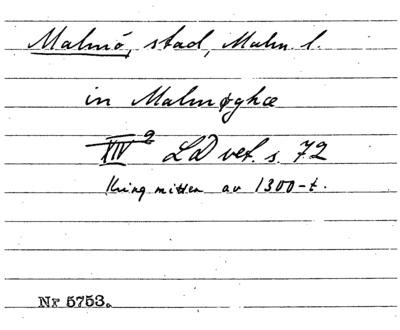 Malmö, stad, Malm. l.
in Malmøghæ
XIV 2 LD vet. s. 72
Kring mitten av 1300-t.
Nr 5753.